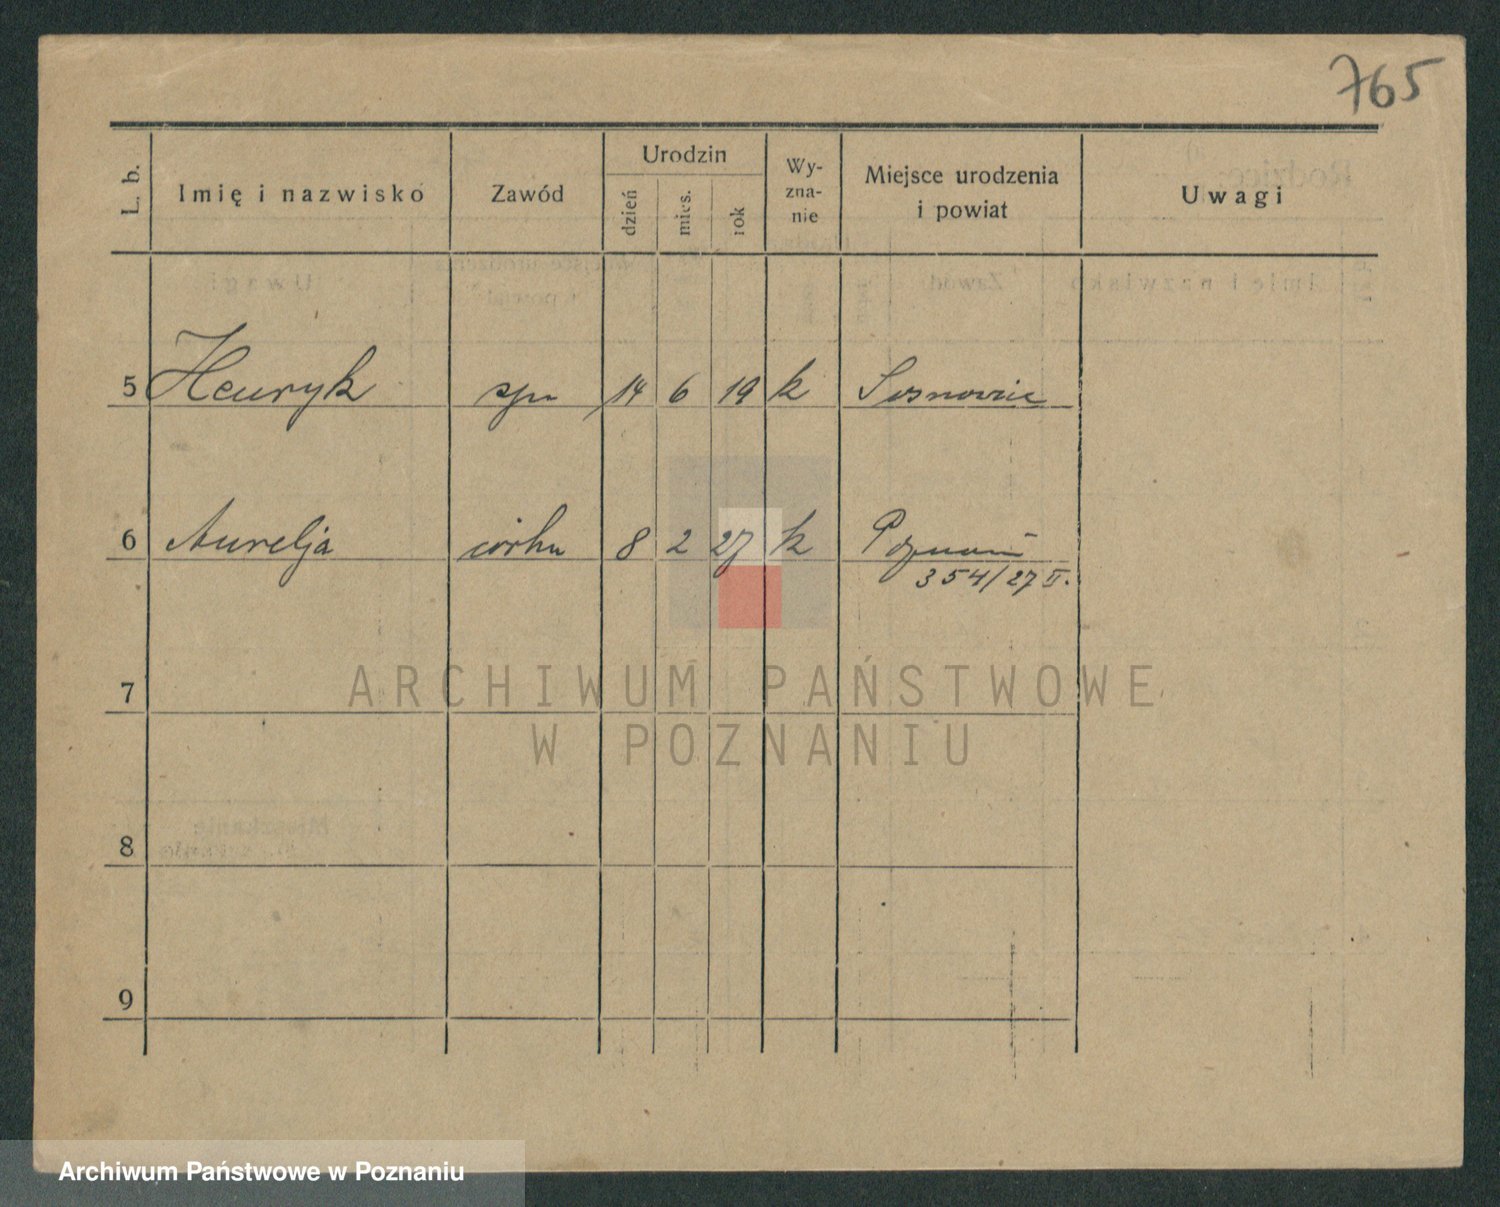 765
L. b.
Imię i nazwisko
Zawód
Urodzin
dzień
mies.
rok
Wy-
zna-
nie
Miejsce urodzenia
i powiat
Uwagi
5 Henryk syn 14 6 19 k Sosnowiec
6 Aurelja córka 8 2 27 k Poznań
354/27 II.
7
8
9
ARCHIWUM PAŃSTWOWE
W POZNANIU
Archiwum Państwowe w Poznaniu